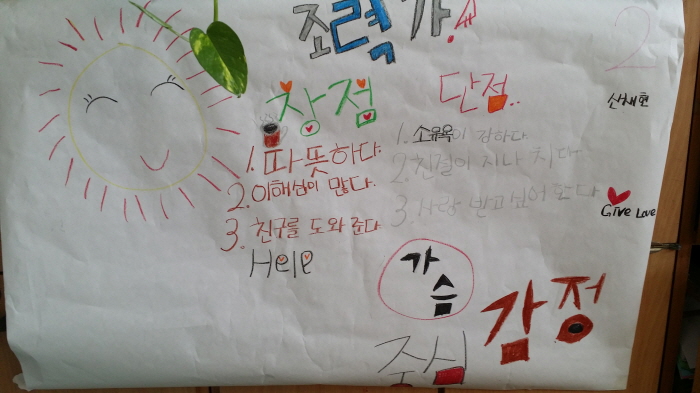 조력가!
2
장점
단점..
산채현
1. 따뜻하다.
2. 이해심이 많다.
3. 친구를 도와 준다
Help
1. 소유욕이 강하다.
2. 친절이 지나 치다.
3. 사랑 받고 싶어 한다
Give Love
가슴
중심
감정